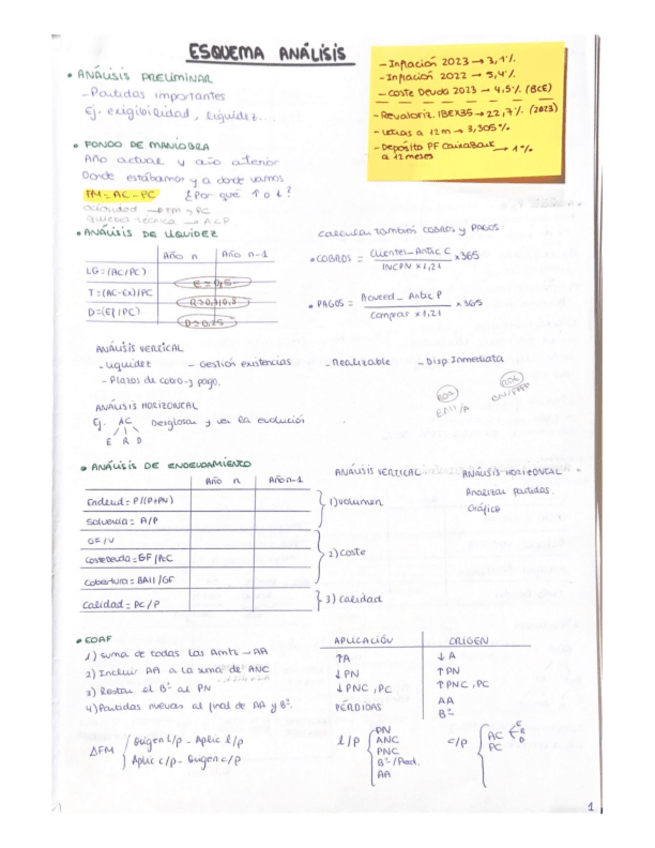 ESQUEMA ANÁLISIS
- Inflación 2023 → 3,1%
- Inflación 2022 → 5,4%
- Coste Deuda 2023 → 4,5% (BCE)
- Revaloriz. IBEX35 → 22,7% (2023)
- Letras a 12m → 3,305%
- Depósito PF CaixaBank → 1%
a 12 meses
• ANÁLISIS PRELIMINAR
- Partidas importantes
Ej. exigibilidad, liquidez...
• FONDO DE MANIOBRA
Año actual y año anterior
Donde estábamos y a donde vamos
FM = AC - PC ¿Por qué ↑ o ↓?
ociosidad → FM > PC
quiebra técnica → A < P
• ANÁLISIS DE LIQUIDEZ
Año n Año n-1
LG = (AC/PC)
E = 0,5
T = (AC-Ex)/PC
D = (Ef/PC)
Calcular también COBROS y PAGOS
• COBROS = Clientes - Antic C / INCPN x 1,21 x 365
• PAGOS = Proveed - Antic P / compras x 1,21 x 365
ANÁLISIS VERTICAL
- Liquidez - Gestión existencias - Realizable - Disp. Inmediata
- Plazos de cobro y pago.
ROA
BAII/A
ROE
ANÁLISIS HORIZONTAL
Ej. AC Desglosar y ver la evolución
E R D
• ANÁLISIS DE ENDEUDAMIENTO
Año n Año n-1
Endeud = P/(P+PN)
Solvencia = A/P
GF/V
Coste Deuda = GF/PcC
Cobertura = BAII/GF
Calidad = PC/P
1) Volumen
2) Coste
3) Calidad
ANÁLISIS VERTICAL
ANÁLISIS HORIZONTAL
Analizar partidas.
Gráfico
• EOAF
1) Suma de todas las Amtz → AA
2) Incluir AA a la suma de ANC
3) Restar el Bº al PN
4) Partidas nuevas al final de AA y Bº.
APLICACIÓN ORIGEN
↑A ↓A
↓PN ↑PN
↓PNC, PC ↑PNC, PC
PÉRDIDAS AA
Bº
ΔFM
Origen l/p - Aplic l/p
Aplic c/p - Origen c/p
l/p
PN
ANC
PNC
Bº/Perd.
AA
c/p
AC
PC
E
R
D
1